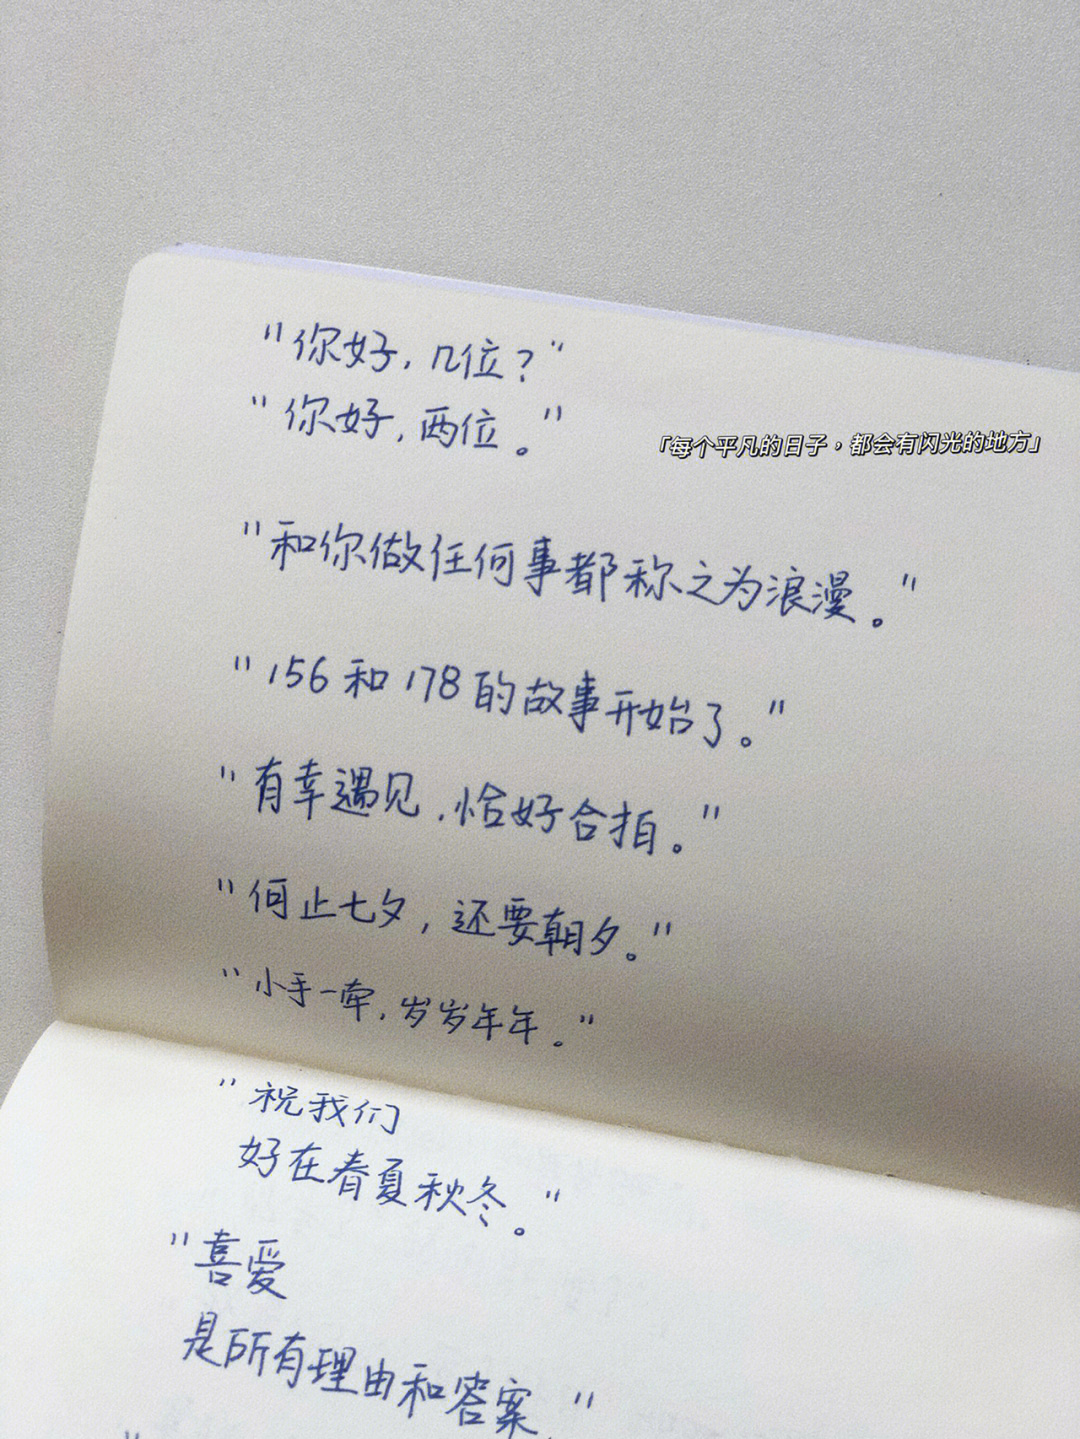 "你好，几位？"
"你好，两位。"
「每个平凡的日子，都会有闪光的地方」
"和你做任何事都称之为浪漫。"
"156和178的故事开始了。"
"有幸遇见，恰好合拍。"
"何止七夕，还要朝夕。"
"小手一牵，岁岁年年。"
"祝我们
好在春夏秋冬。"
"喜爱
是所有理由和答案."